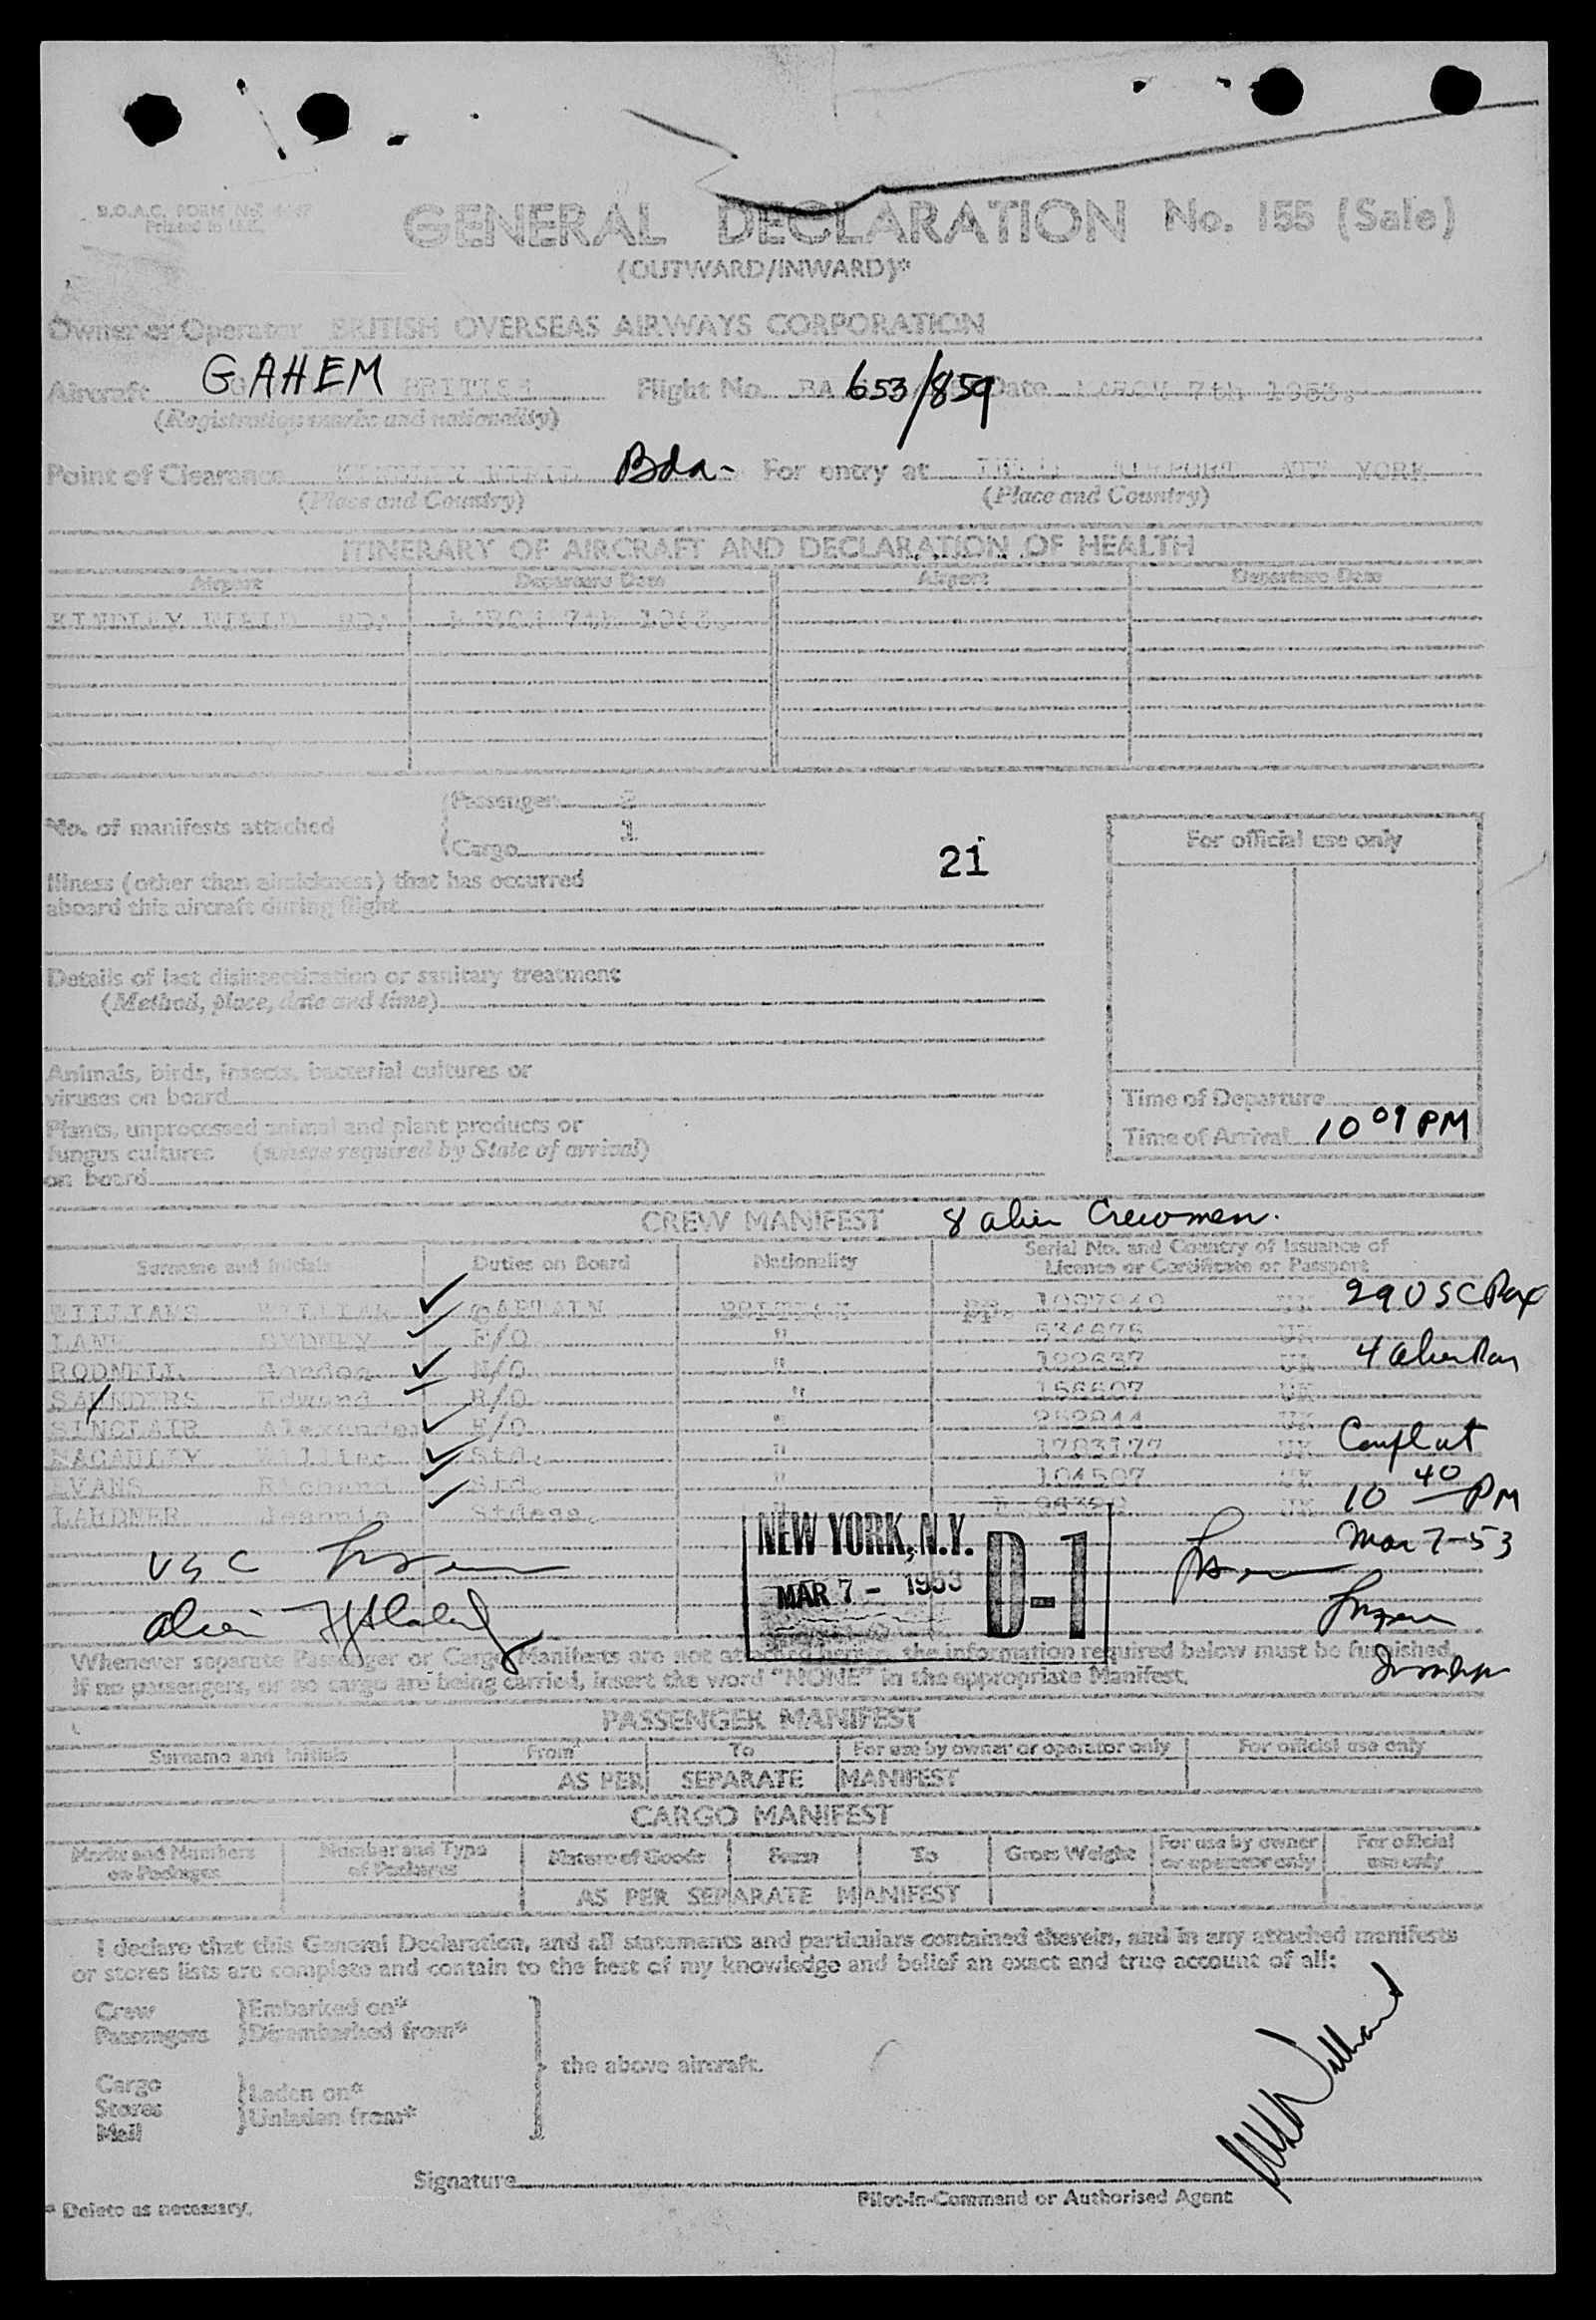 B.O.A.C. FORM No.
Printed in U.K.
GENERAL DECLARATION No. 155 (Sale)
(OUTWARD/INWARD)*
Owner or Operator BRITISH OVERSEAS AIRWAYS CORPORATION
Aircraft GAHEM BRITISH Flight No. BA 653/859 Date MARCH 7th 1953.
(Registration marks and nationality)
Point of Clearance KINDLEY FIELD Bda- For entry at AIRPORT NEW YORK
(Place and Country) (Place and Country)
ITINERARY OF AIRCRAFT AND DECLARATION OF HEALTH
Airport Departure Date Airport Departure Date
KINDLEY FIELD BDA MARCH 7th 1953.
No. of manifests attached
Passenger
Cargo 1
21
For official use only
Illness (other than airsickness) that has occurred
aboard this aircraft during flight
Details of last disinsectization or sanitary treatment
(Method, place, date and time)
Animals, birds, insects, bacterial cultures or
viruses on board
Time of Departure
Plants, unprocessed animal and plant products or
fungus cultures (where required by State of arrival)
on board
Time of Arrival 10 09 PM
CREW MANIFEST 8 alien Crewmen.
Surname and Initials Duties on Board Nationality Serial No. and Country of Issuance of
Licence or Certificate or Passport
WILLIAMS WILLIAM CAPTAIN BRITISH PP. UK 29 USC Pax
LANE SYDNEY F/O " 534875 UK
RODNELL Gordon N/O " 199637 UK 4 alien Pax
SAUNDERS Edward R/O " 156607 UK
SINCLAIR Alexander E/O " UK
MACAULEY Std. " 1703177 UK
EVANS Richard Std. " 104507 UK
LARDNER Jeannie Stdess. " UK
10 40 PM
Mar 7-53
NEW YORK, N.Y.
MAR 7 - 1953
D-1
USC
Alien
Whenever separate Passenger or Cargo Manifests are not attached hereto, the information required below must be furnished.
If no passengers, or no cargo are being carried, insert the word "NONE" in the appropriate Manifest.
PASSENGER MANIFEST
Surname and Initials From To For use by owner or operator only For official use only
AS PER SEPARATE MANIFEST
CARGO MANIFEST
Marks and Numbers on Packages Number and Type of Packages Nature of Goods From To Gross Weight For use by owner or operator only For official use only
AS PER SEPARATE MANIFEST
I declare that this General Declaration, and all statements and particulars contained therein, and in any attached manifests
or stores lists are complete and contain to the best of my knowledge and belief an exact and true account of all:
Crew Embarked on*
Passengers Disembarked from*
the above aircraft.
Cargo Laden on*
Stores Unladen from*
Mail
Signature
Pilot-in-Command or Authorised Agent
* Delete as necessary.